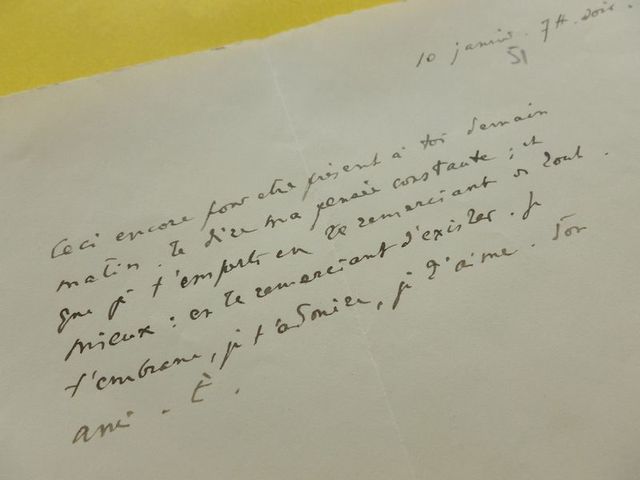 10 janvier. 7H. soir.
51
Ceci encore pour être présent à toi demain
matin. te dire ma pensée constante ; et
que je t'emporte en te remerciant de tout.
mieux : en te remerciant d'exister. Je
t'embrasse, je t'admire, je t'aime. Ton
ami. È.